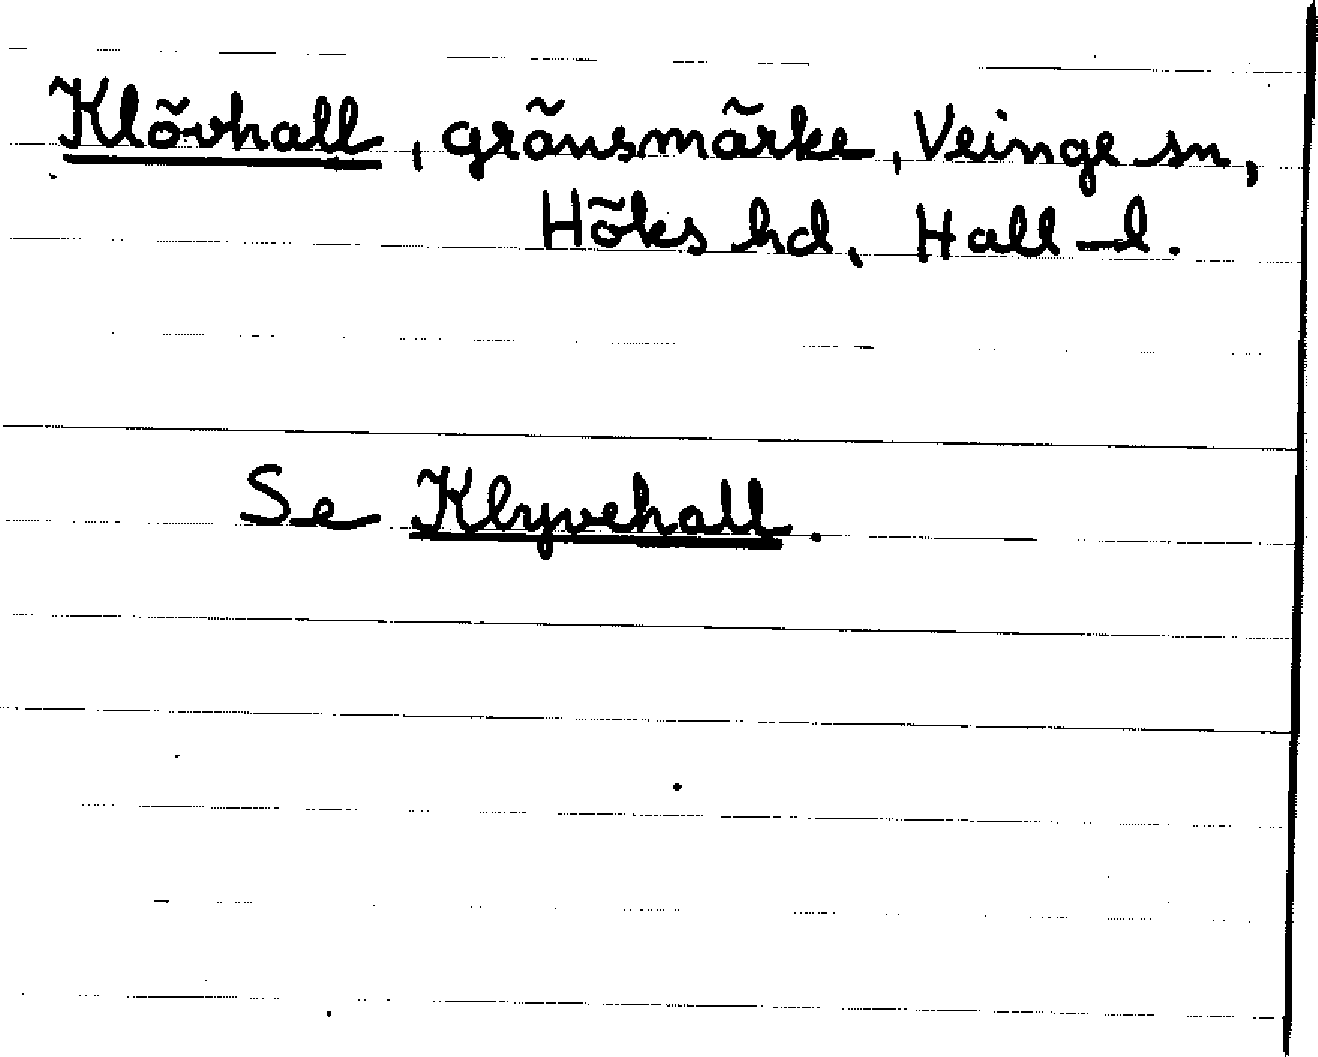 Klövhall, gränsmärke, Veinge sn,
Höks hd, Hall-l.
Se Klyvehall.